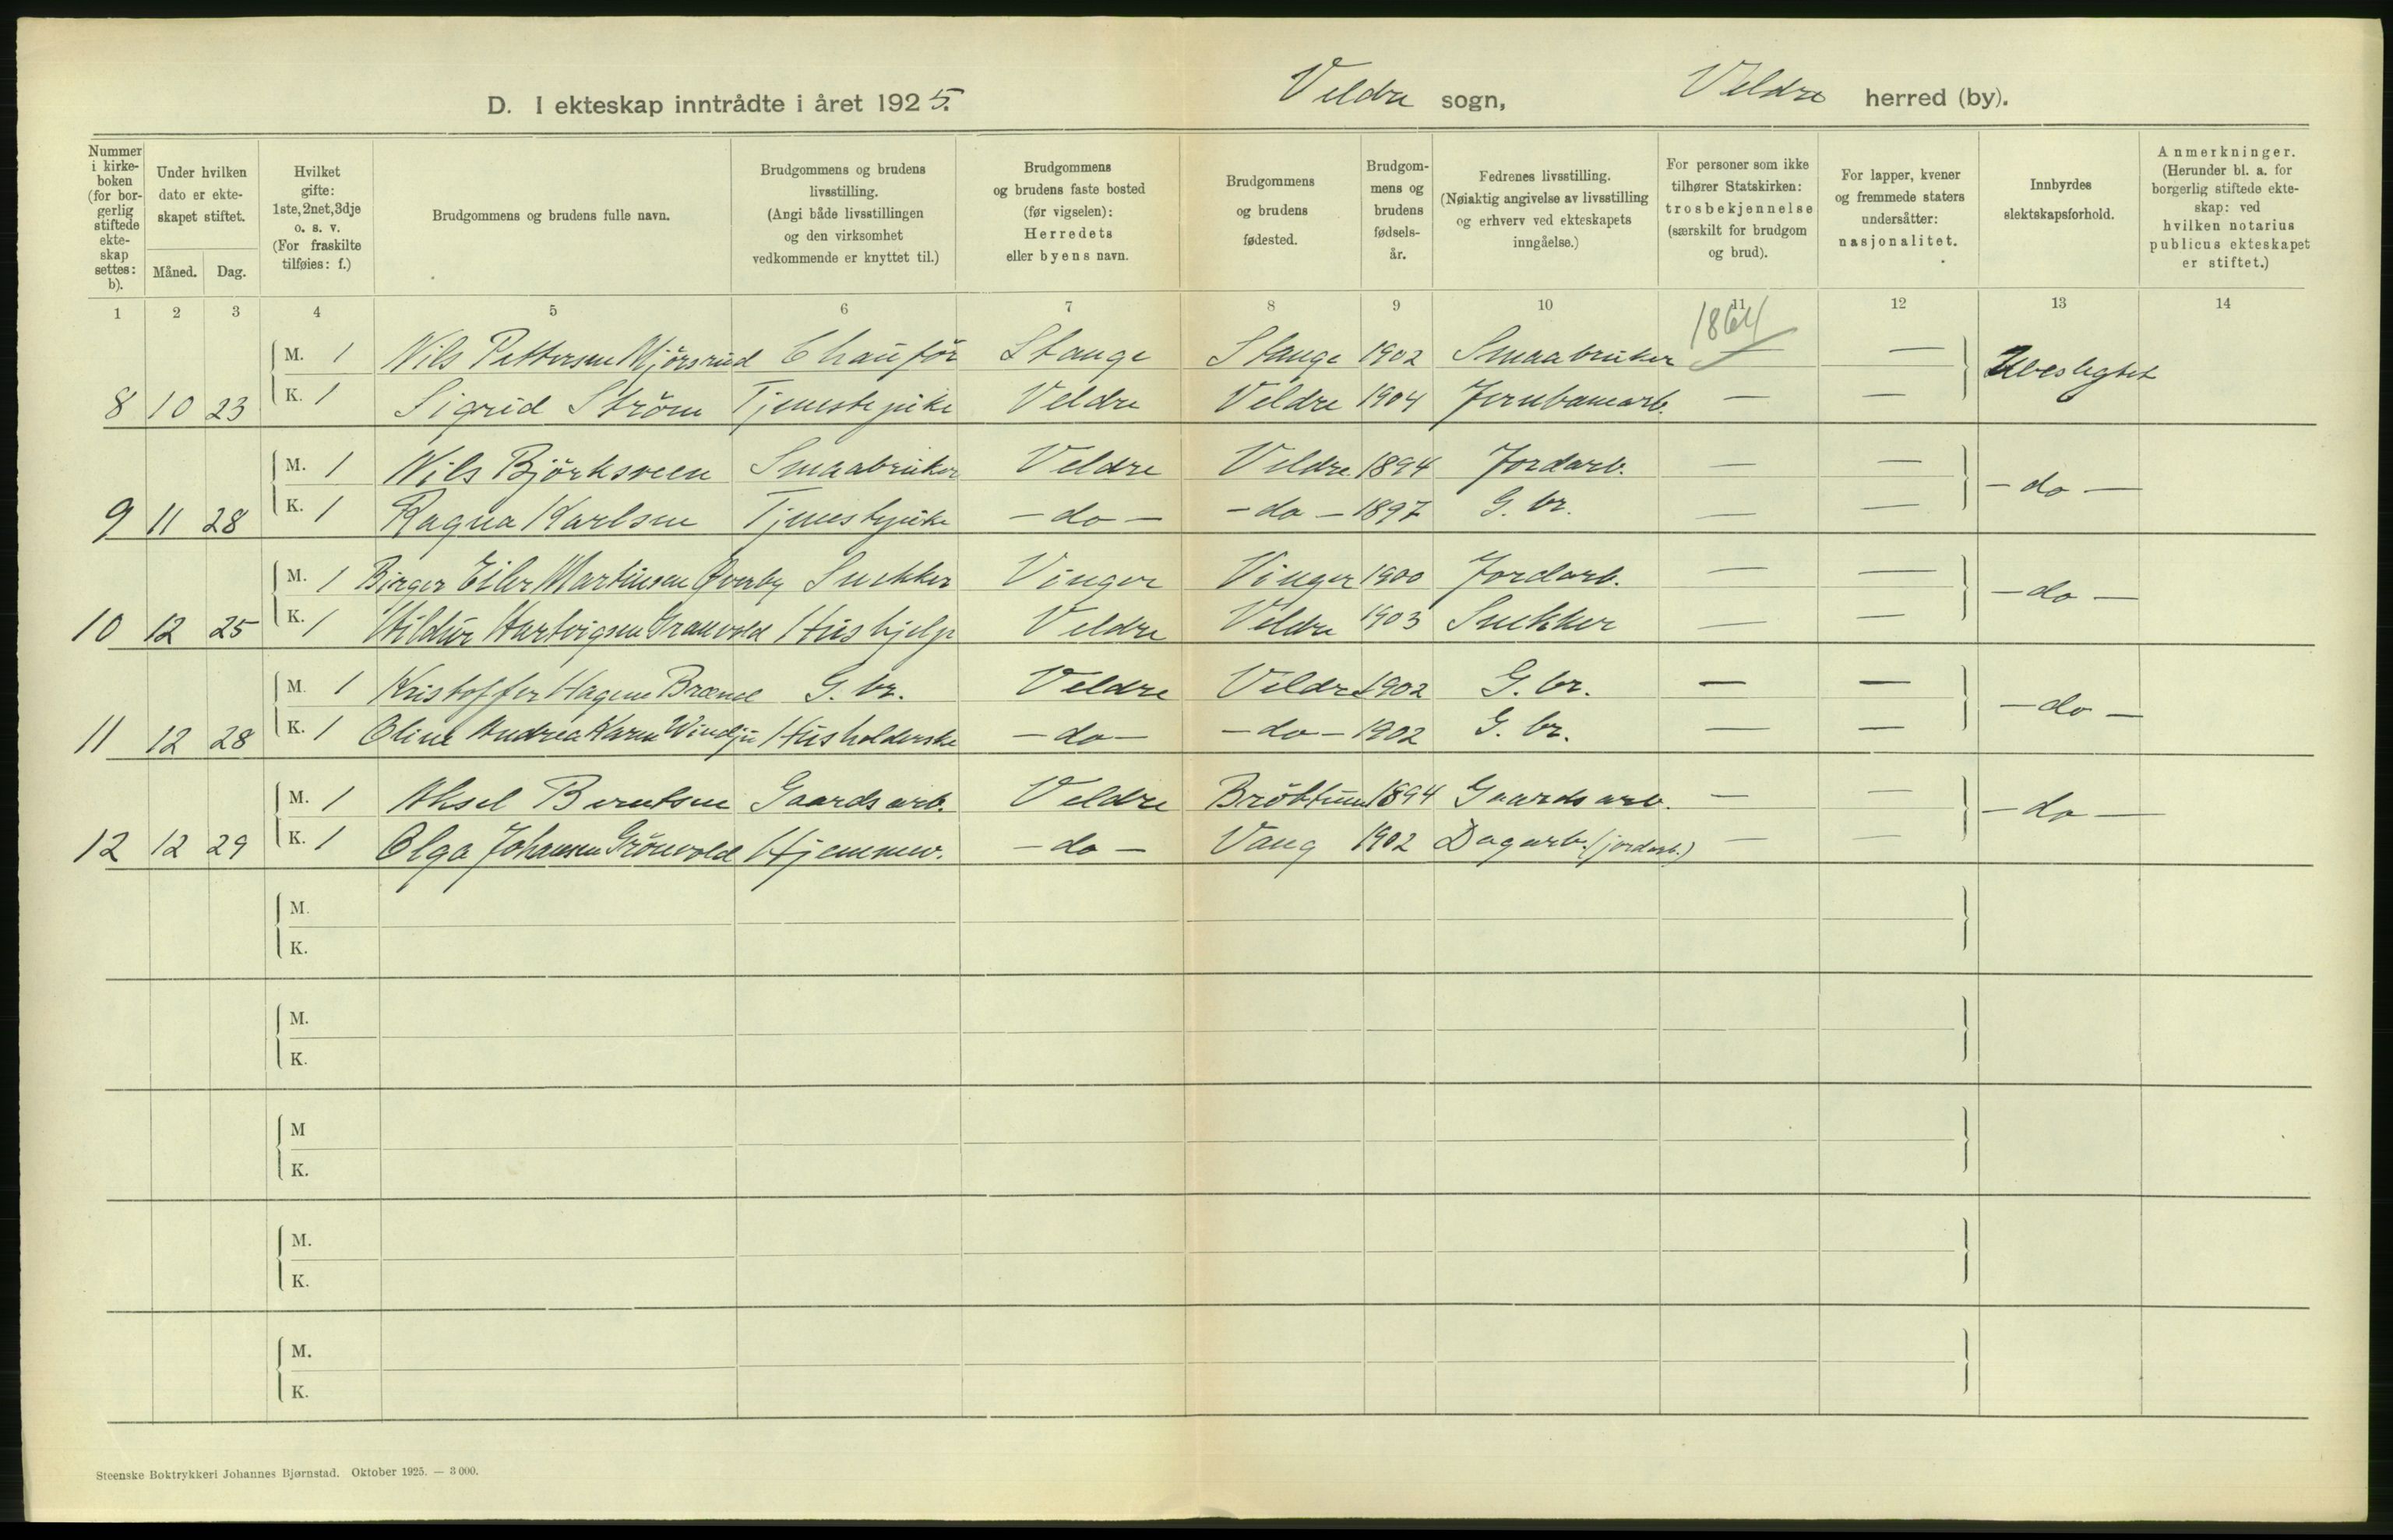 D. I ekteskap inntrådte i året 1925. Veldre sogn, Veldre herred (by).
Nummer i kirkeboken (for borgerlig stiftede ekteskap settes: b).
Under hvilken dato er ekteskapet stiftet.
Måned. Dag.
Hvilket gifte: 1ste, 2net, 3dje o. s. v. (For fraskilte tilføies: f.)
Brudgommens og brudens fulle navn.
Brudgommens og brudens livsstilling. (Angi både livsstillingen og den virksomhet vedkommende er knyttet til.)
Brudgommens og brudens faste bosted (før vigselen): Herredets eller byens navn.
Brudgommens og brudens fødested.
Brudgommens og brudens fødselsår.
Fedrenes livsstilling. (Nøiaktig angivelse av livsstilling og erhverv ved ekteskapets inngåelse.)
For personer som ikke tilhører Statskirken: trosbekjennelse (særskilt for brudgom og brud).
For lapper, kvener og fremmede staters undersåtter: nasjonalitet.
Innbyrdes slektskapsforhold.
Anmerkninger. (Herunder bl. a. for borgerlig stiftede ekteskap: ved hvilken notarius publicus ekteskapet er stiftet.)
1 2 3 4 5 6 7 8 9 10 11 12 13 14
1864
M. 1 Nils Pettersen Mjörsrud Chauför Stange Stange 1902 Smaabruker — — Ubeslegtet
8 10 23 K. 1 Sigrid Ström Tjenestepike Veldre Veldre 1904 Jernbanearb. — —
M. 1 Nils Björksveen Smaabruker Veldre Veldre 1894 Jordarb. — — — do —
9 11 28 K. 1 Ragna Karlsen Tjenestepike — do — — do — 1897 G. br. — —
M. 1 Birger Eiler Martinsen Överby Snekker Vinger Vinger 1900 Jordarb. — — — do —
10 12 25 K. 1 Hildur Hartvigsen Granvold Hushjelp Veldre Veldre 1903 Snekker — —
M. 1 Kristoffer Hagen G. br. Veldre Veldre 1902 G. br. — — — do —
11 12 28 K. 1 Oline Andrea Karen Windju Husholderske — do — — do — 1902 G. br. — —
M. 1 Aksel Berntsen Gaardsarb. Veldre Bröttum 1894 Gaardsarb. — — — do —
12 12 29 K. 1 Olga Johansen Grönvold Hjemmev. — do — Vang 1902 Dagarb. (jordarb.) — —
M.
K.
M.
K.
M
K.
M.
K.
M.
K.
Steenske Boktrykkeri Johannes Bjørnstad. Oktober 1925. — 3 000.